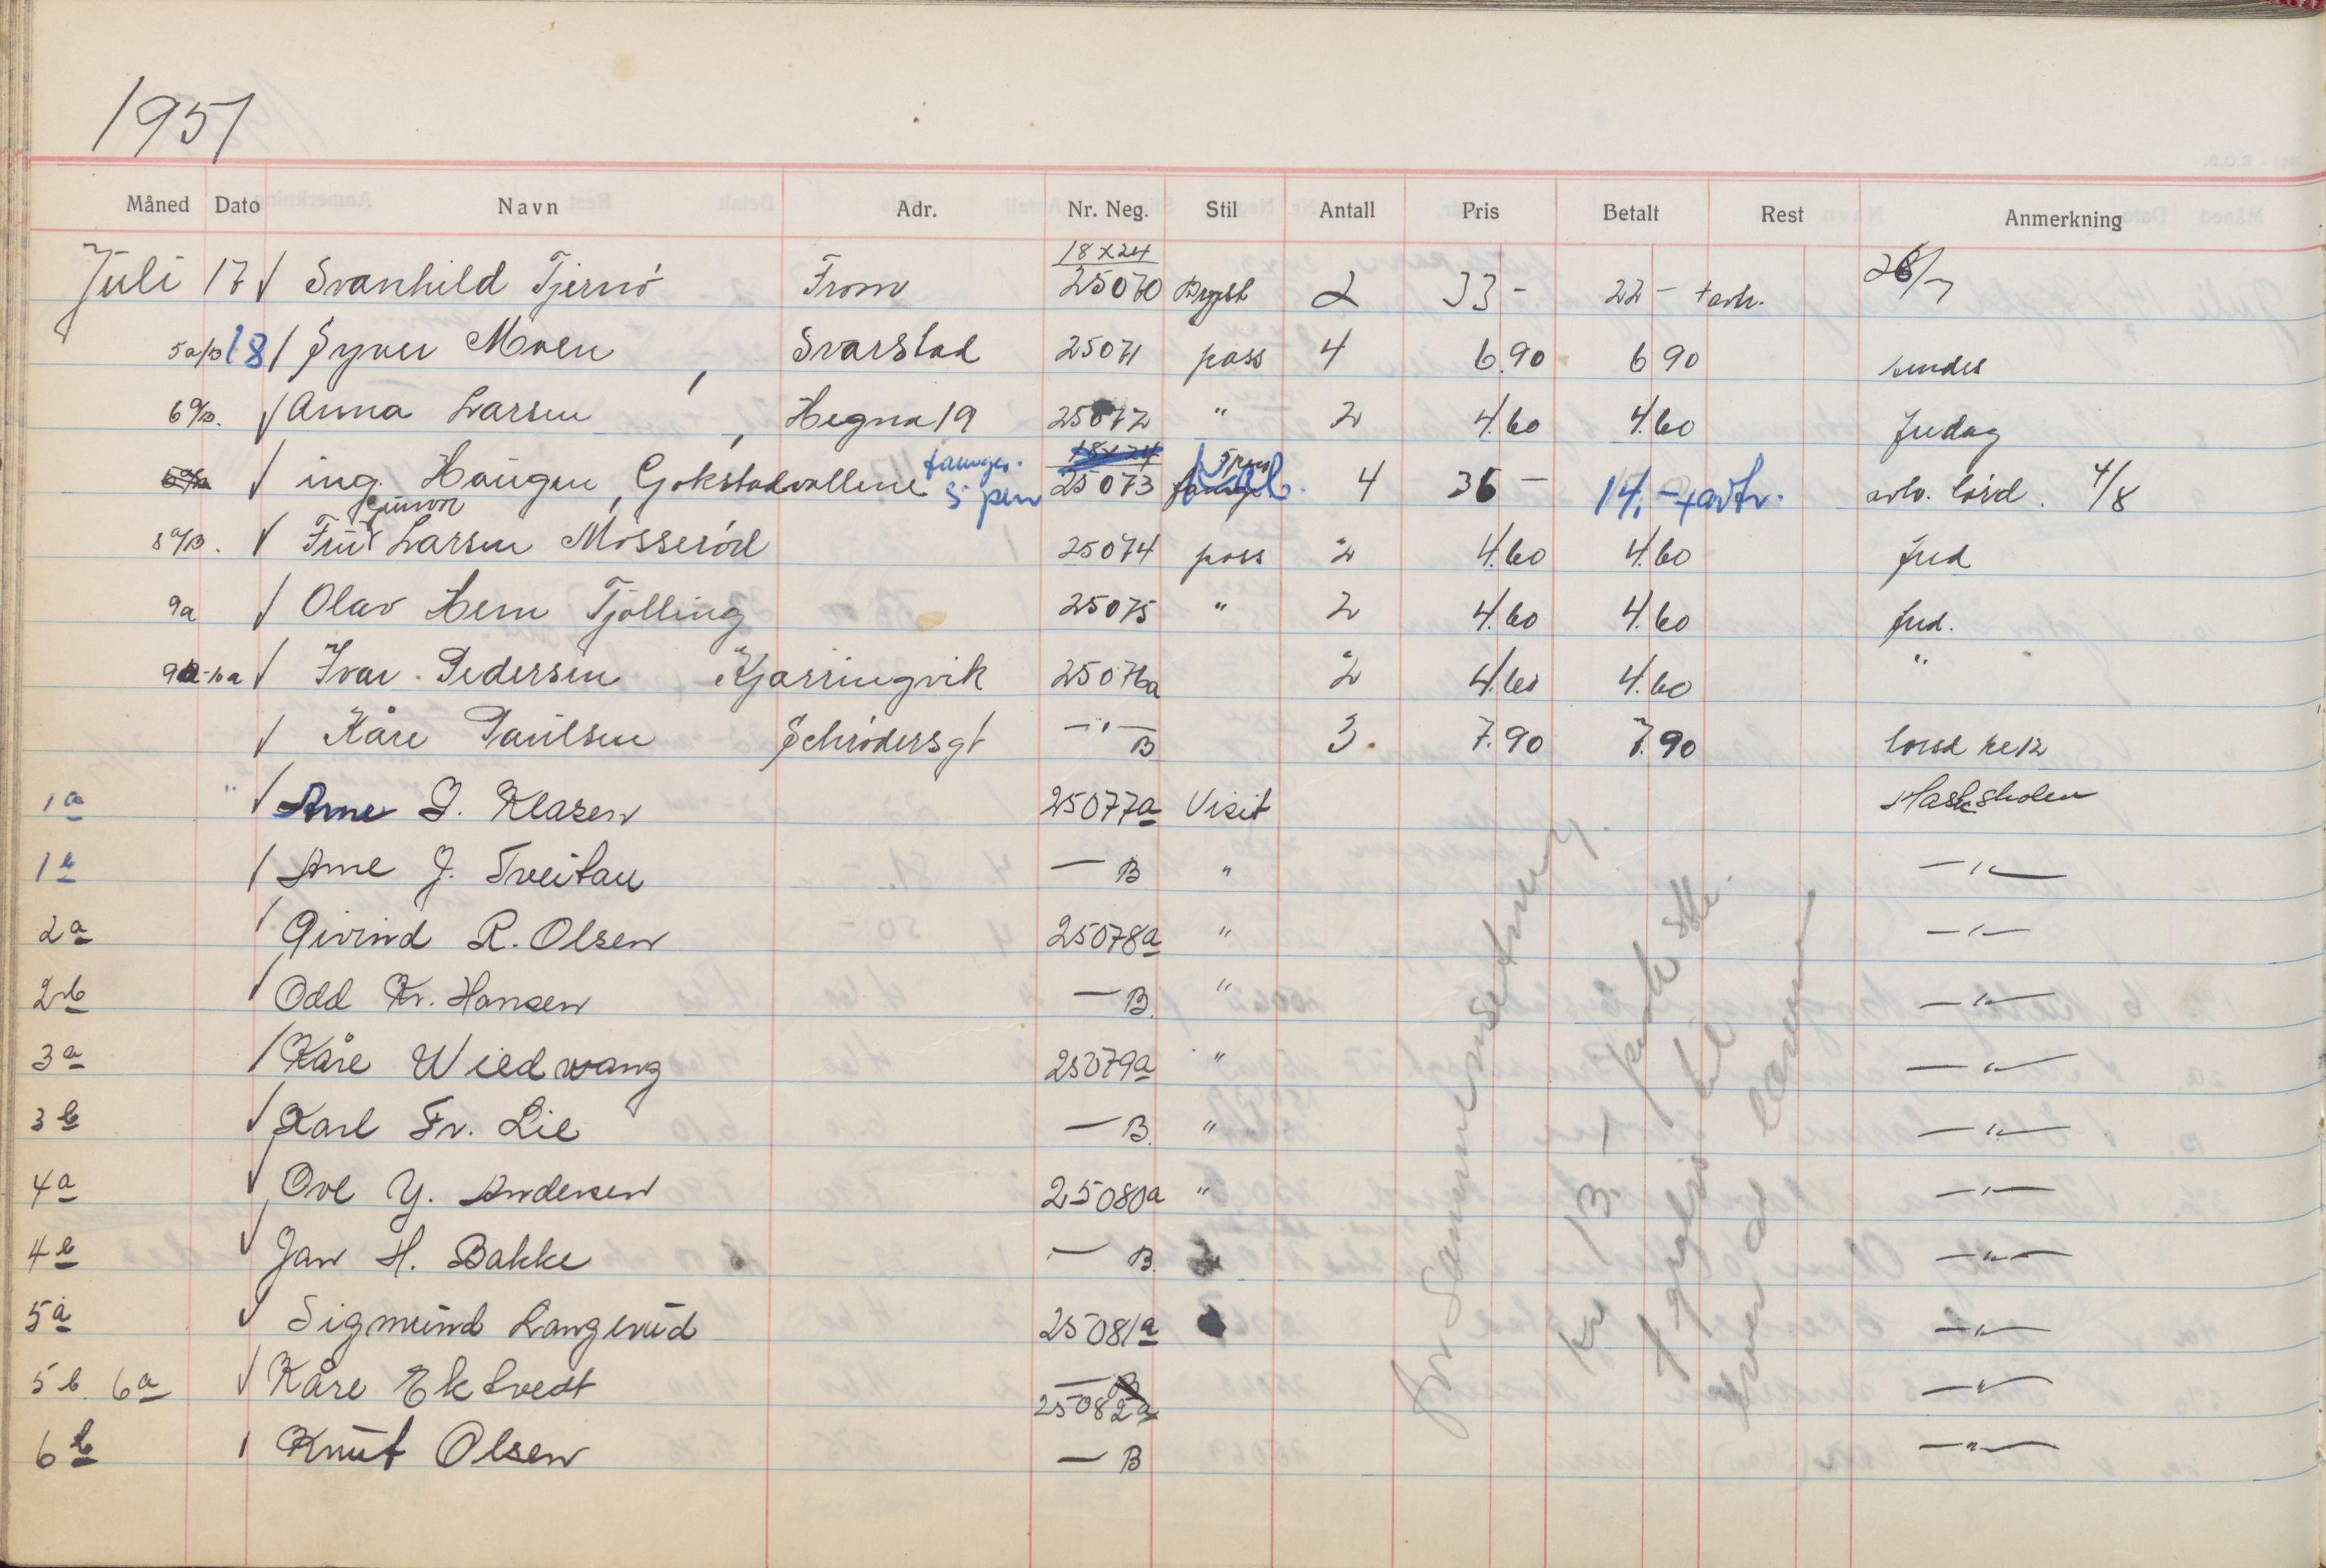 1951
Måned Dato Navn Adr. Nr. Neg. Stil Antall Pris Betalt Rest Anmerkning
18x24
Juli 17 Svanhild Tjernö From 25070 Bryst 2 33 - 22 - + avtr. 28/7
5a/B 18 Syver Moen Svarstad 25071 pass 4 6.90 6 90 sendes
6a/B. Anna Larsen, Hegna 19 25072 " 2 4.60 4.60 fredag
18x24
ing. Haugen, Gokstadvollene 5 pen 25073 4 36 - 14,- + avtr. avto. lörd. 4/8
Gunvor
8a/B. Fru Larsen Mosseröd 25074 pass 2 4.60 4.60 fred
9a Olav Hem Tjölling 25075 " 2 4.60 4.60 fred.
Ivar Pedersen Kjerringvik 25076a 2 4.60 4.60 "
Kåre Paulsen Schrödersgt —"— B 3. 7.90 7.90 lörd kl 12
1a " Arne J. Klasen 25077a Visit
1b Arne J. Tveitan — B " —"—
2a Öivind R. Olsen 25078a " —"—
2b Odd Kr. Hansen — B. " —"—
3a Kåre Wiedswang 25079a " —"—
3b Karl Fr. Lie — B. " —"—
4a Ove Y. Andersen 25080a " —"—
4b Jan H. Bakke — B. —"—
5a Sigmund Langerud 25081a —"—
5b. 6a Kåre Ektvedt — B —"—
25082a
6b Knut Olsen — B —"—
for Sammensetning.
Kr 13.- pr stk.